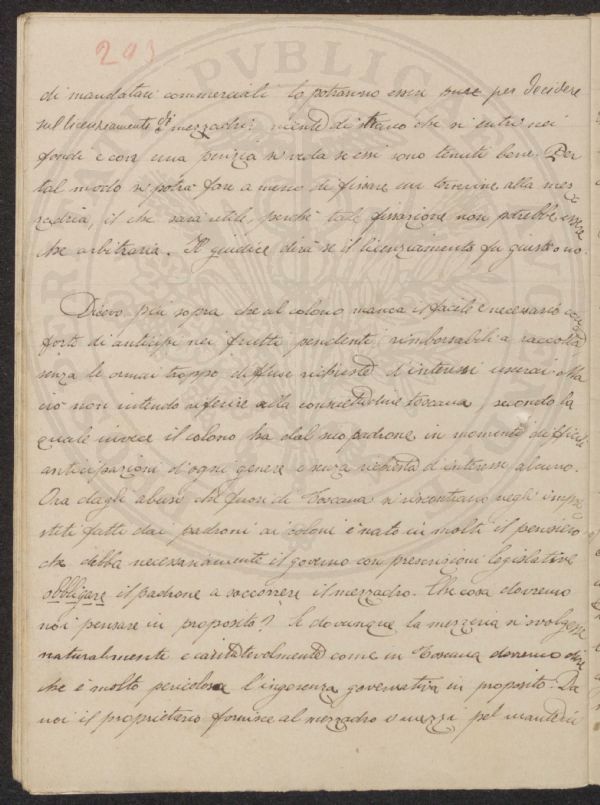 293
di mandatari commerciali lo potranno essere pure per decidere
sul licenziamento di mezzadri; niente di strano che si entri nei
fondi e con una perizia si veda se essi sono tenuti bene. Per
tal modo si potrà fare a meno di fissare un termine alla mez-
zadria, il che sarà utile, perché tale fissazione non potrebbe essere
che arbitraria. Il giudice dirà se il licenziamento fu giusto o no.
Dicevo più sopra che al colono manca il facile e necessario con-
forto di anticipi nei frutti pendenti, rimborsabili a raccolta
senza le ormai troppo diffuse richieste d'interessi usurai. Ma
ciò non intendo riferire alla consuetudine toscana, secondo la
quale invece il colono ha dal suo padrone in momenti difficili
anticipazioni d'ogni genere e senza richiesta d'interesse alcuno.
Ora dagli abusi che fuori di Toscana si riscontrano negli impre-
stiti fatti dai padroni ai coloni è nato in molti il pensiero
che debba necessariamente il governo con prescrizioni legislative
obbligare il padrone a soccorrere il mezzadro. Che cosa dovremo
noi pensare in proposito? Se dovunque la mezzeria si svolgesse
naturalmente e caritatevolmente come in Toscana dovremo dire
che è molto pericolosa l'ingerenza governativa in proposito. Da
noi il proprietario fornisce al mezzadro i mezzi pel manteni